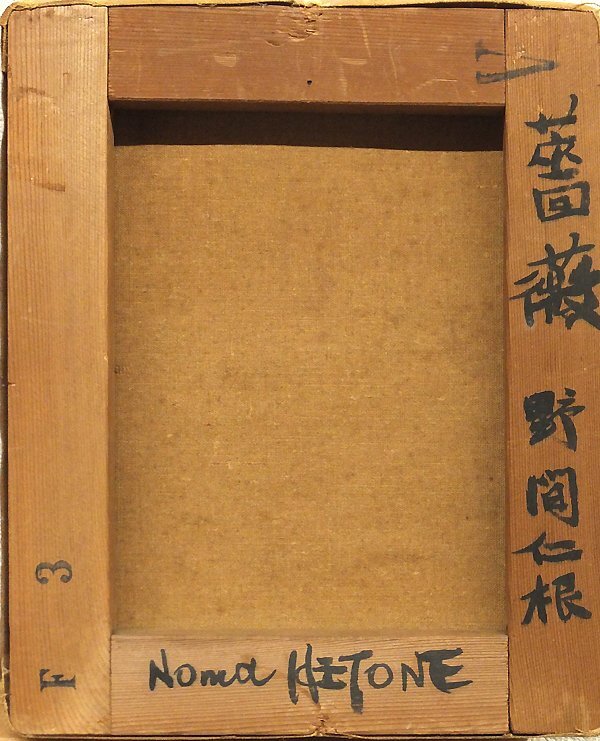 薔薇 野間仁根
F 3
Noma HITONE